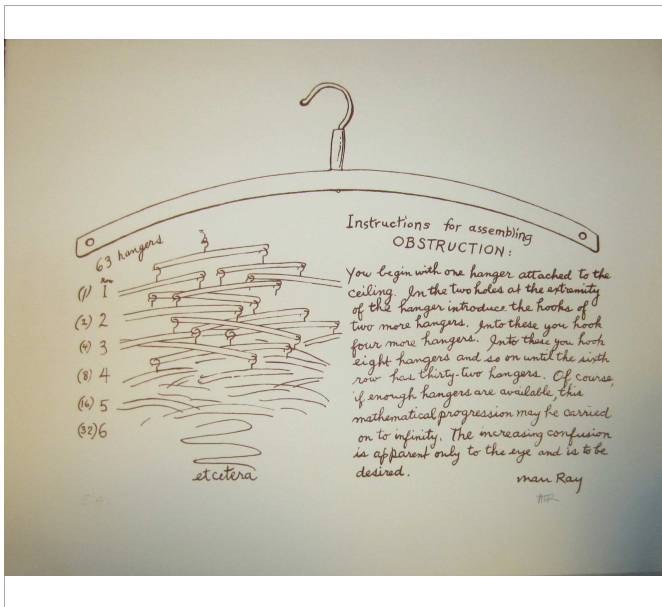 63 hangers
Row
(1) 1
(2) 2
(4) 3
(8) 4
(16) 5
(32) 6
et cetera
Instructions for assembling
OBSTRUCTION:
You begin with one hanger attached to the
ceiling. In the two holes at the extremity
of the hanger introduce the hooks of
two more hangers. Into these you hook
four more hangers. Into these you hook
eight hangers and so on until the sixth
row has thirty-two hangers. Of course,
if enough hangers are available, this
mathematical progression may be carried
on to infinity. The increasing confusion
is apparent only to the eye and is to be
desired.
Man Ray